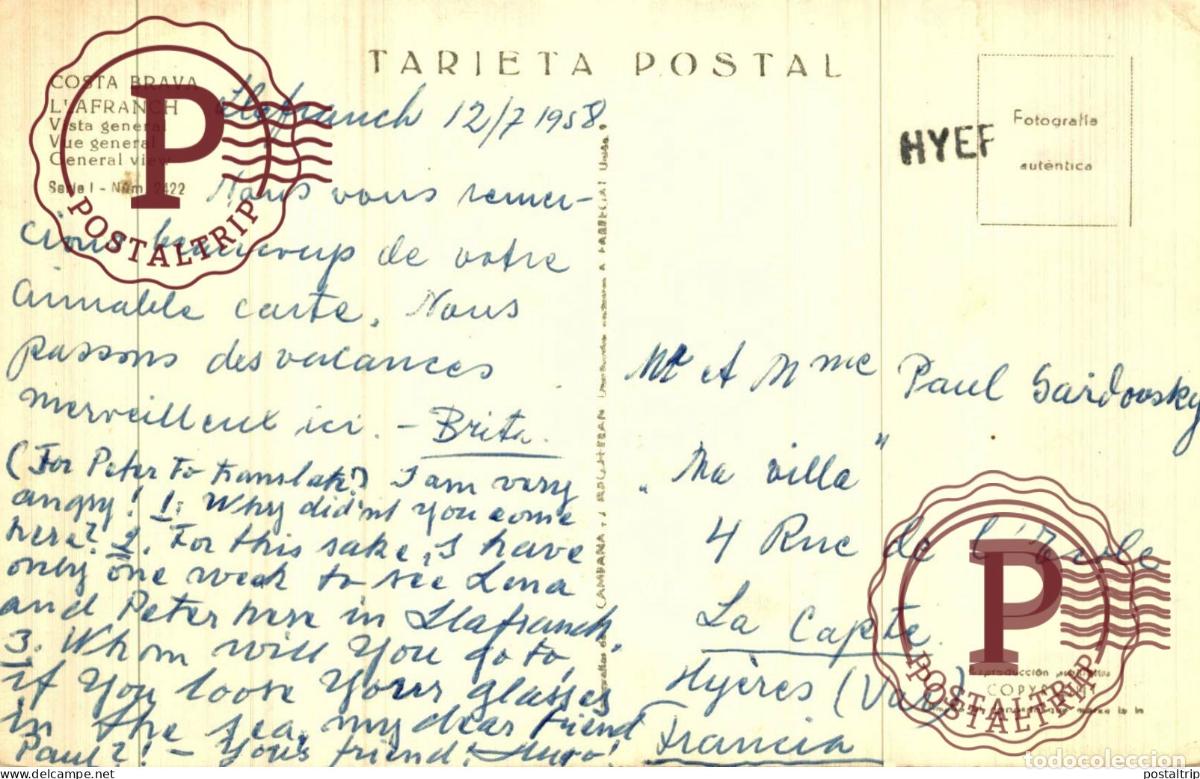 TARJETA POSTAL
COSTA BRAVA
LLAFRANCH
Vista general
Vue general
General view
Serie I - Núm. 2422
Llafranch 12/7 1958.
Nous vous remer-
cions beaucoup de votre
aimable carte. Nous
passons des vacances
merveilleux ici. - Brita.
(For Peter to translate!) I am very
angry! 1: Why didn't you come
here? 2. For this sake, I have
only one week to see Lena
and Peter here in Llafranch.
3. Whom will you go to,
if you loose your glasses
in the sea, my dear friend
Paul?! - Your friend: Hugo!
HYEF
Fotografía
auténtica
Mr et Mme Paul Sardovsky
"Ma villa"
4 Rue de l'Ecole
La Capte.
Hyères (Var)
Francia
COPYRIGHT
P
POSTALTRIP
P
POSTALTRIP
todocoleccion
postaltrip